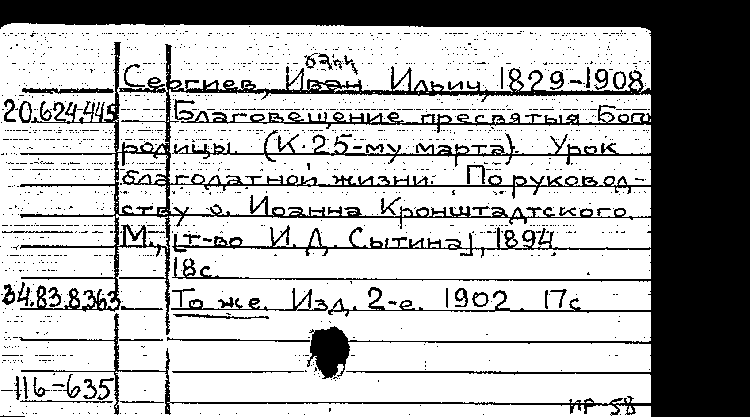 Сергиев, Иван Ильич, 1829-1908.
20.624.445 Благовещение пресвятыя Бого
родицы. (К 25-му марта). Урок
благодатной жизни. По руковод-
ству о. Иоанна Кронштадтского.
М., [т-во И. Д. Сытина], 1894.
18с.
34.83.8.363. То же. Изд. 2-е. 1902. 17с.
116-635
ИР-58